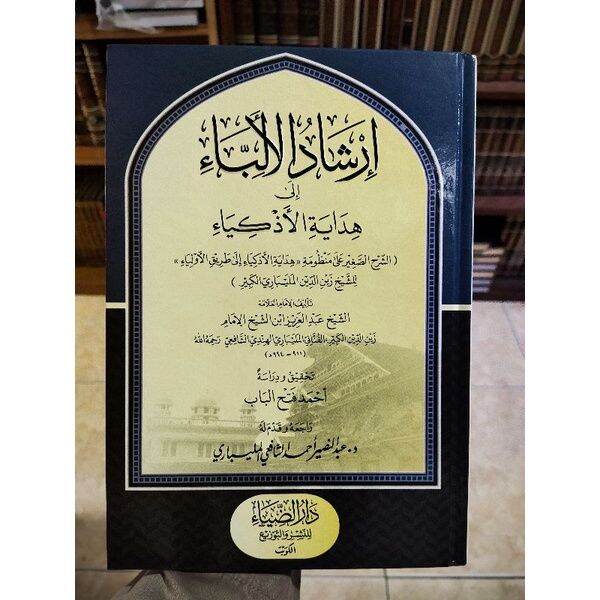 إِرْشَادُ الأَلِبَّاءِ
إِلَى
هِدَايَةِ الأَذْكِيَاءِ
( الشَّرْحِ الصَّغِيْرِ عَلَى مَنْظُومَةِ «هِدَايَةِ الأَذْكِيَاءِ إِلَى طَرِيْقِ الأَوْلِيَاءِ»
لِلشَّيْخِ زَيْنِ الدِّيْنِ المَلَيْبَارِي الكَبِيْرِ )
تَأليْف الإمَام العَلَّامَة
الشَّيْخ عَبْد العَزِيْز ابْن الشَّيْخ الإمَام
زَيْن الدِّيْن الكَبِيْر، الفُنَّانِي المَلَيْبَارِي الهِنْدِي الشَّافِعِي رَحِمَهُ اللهُ
(٩١١ - ٩٩٤هـ)
تَحْقِيْق وَدِرَاسَةُ
أحْمَد فَتْح البَاب
رَاجَعَهُ وَقَدَّمَ لَهُ
د. عبد النصير أحمد الشافعي المليباري
دَارُ الضِّيَاءِ
لِلنَّشْرِ وَالتَّوْزِيْع
الكُوَيْت